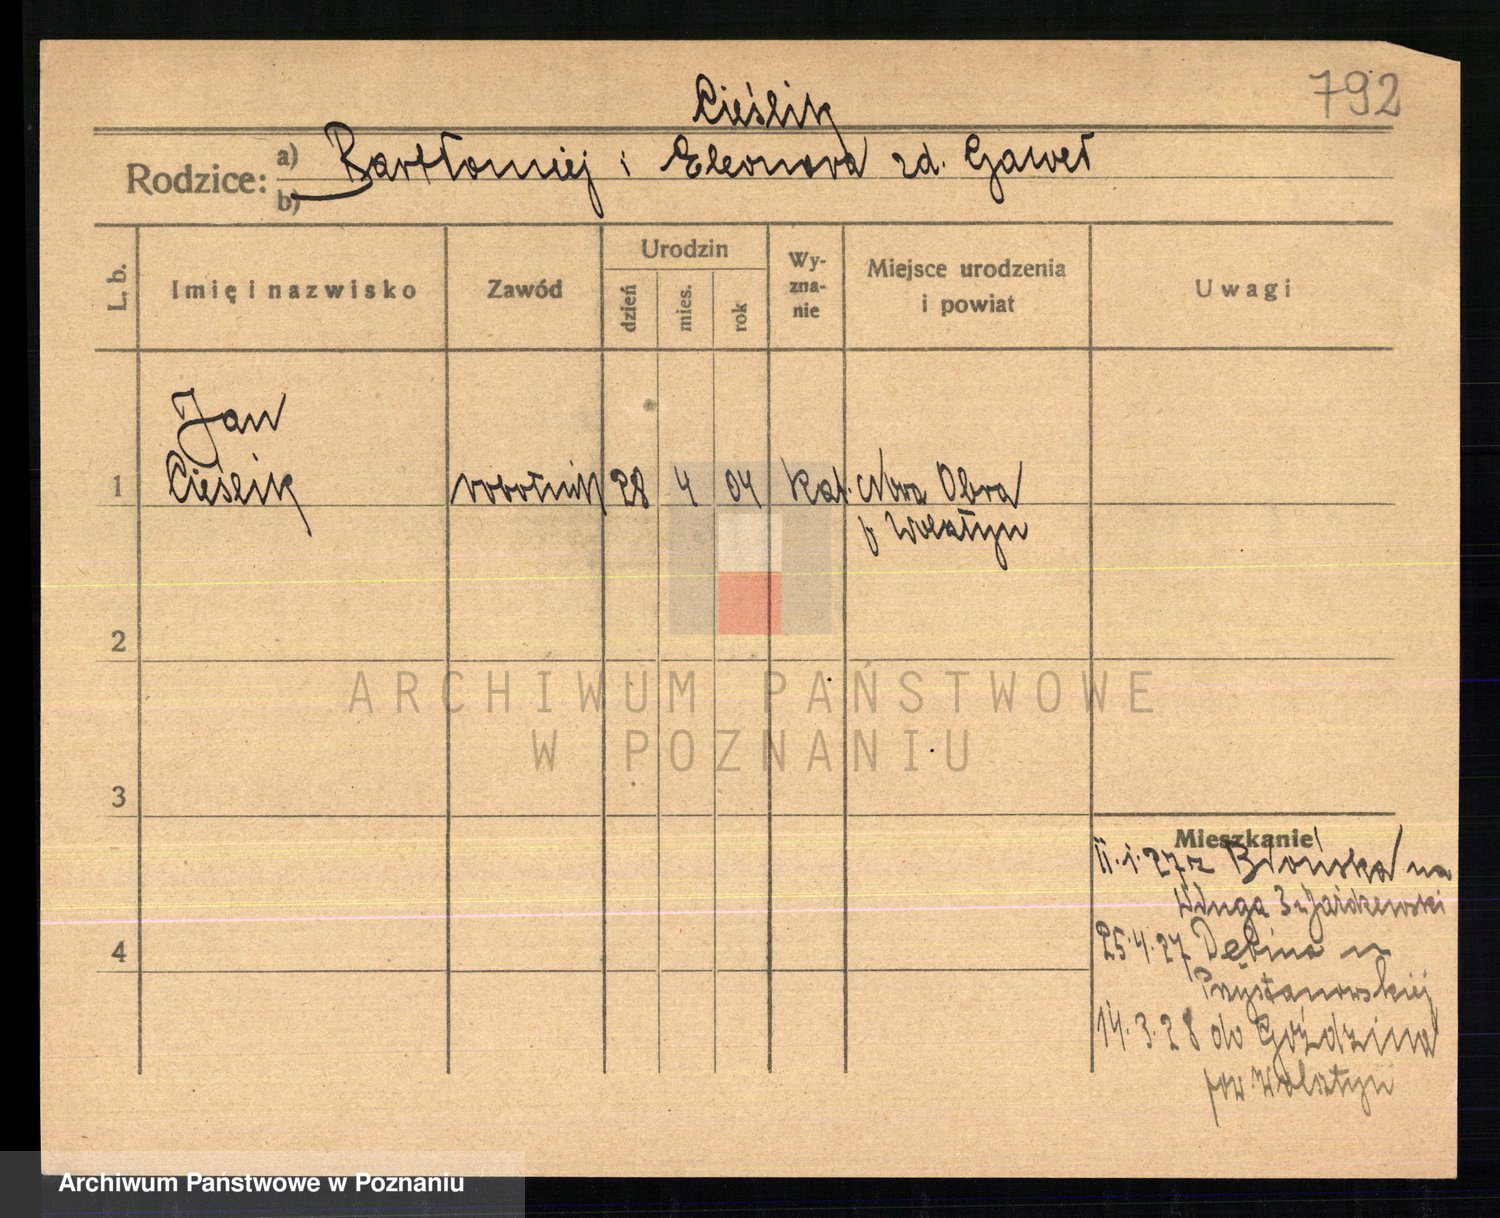 792
Cieślik
Rodzice: a) Bartłomiej i Eleonora zd. Gaweł
b)
L. b.
Imię i nazwisko
Zawód
Urodzin
dzień
mies.
rok
Wy-
zna-
nie
Miejsce urodzenia
i powiat
Uwagi
Jan
1 Cieślik robotnik 28 4 04 kat. Nova Obra
p Wolsztyn
2
ARCHIWUM PAŃSTWOWE
W POZNANIU
3
Mieszkanie
11.1.27 z Błońska na
Długa 3
4
25.4.27 Dębina
14.3.28 do Goździna
pow. Wolsztyn
Archiwum Państwowe w Poznaniu